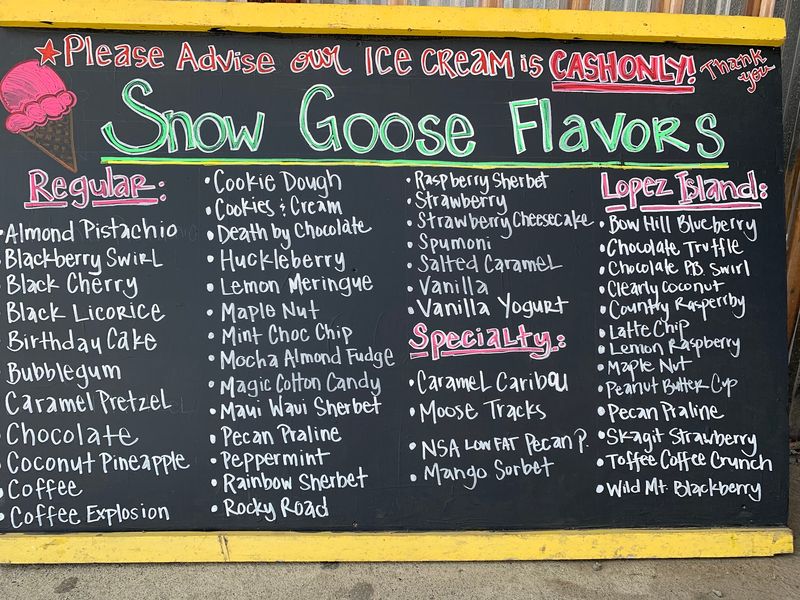 ★Please Advise our Ice cream is CASH ONLY! Thank you
Snow Goose Flavors
Regular:
• Almond Pistachio
• Blackberry Swirl
• Black Cherry
• Black Licorice
• Birthday Cake
• Bubblegum
• Caramel Pretzel
• Chocolate
• Coconut Pineapple
• Coffee
• Coffee Explosion
• Cookie Dough
• Cookies & Cream
• Death by Chocolate
• Huckleberry
• Lemon Meringue
• Maple Nut
• Mint Choc Chip
• Mocha Almond Fudge
• Magic Cotton Candy
• Maui Waui Sherbet
• Pecan Praline
• Peppermint
• Rainbow Sherbet
• Rocky Road
• Raspberry Sherbet
• Strawberry
• Strawberry Cheesecake
• Spumoni
• Salted Caramel
• Vanilla
• Vanilla Yogurt
Specialty:
• Caramel Caribou
• Moose Tracks
• NSA Low Fat Pecan P.
• Mango Sorbet
Lopez Island:
• Bow Hill Blueberry
• Chocolate Truffle
• Chocolate P.B. Swirl
• Clearly Coconut
• Country Rasperrby
• Latte Chip
• Lemon Raspberry
• Maple Nut
• Peanut Butter Cup
• Pecan Praline
• Skagit Strawberry
• Toffee Coffee Crunch
• Wild Mt. Blackberry